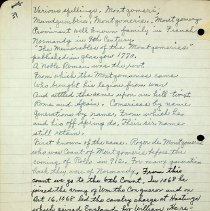 Various spellings. Montgomeri,
Mundgumbrie, Montgomerie. Montgomery
Prominent well known family in French
Normandy in 9th Century
"The Memorables of the Montgomeries"
published in Glasgow 1770.
A noble Roman was the root
From which the Montgomeries came
Who brought his legion from the
And settled the dominion on our last toast
Rome and Spain. Comeries by name
which has
and his offspring do. Their sir name
still retain.
First known of the name. Roger de Montgomerie
who was Count of Montgomerie before the
coming of Rollo in 912. For many generations
that they were of Normandy. From this
count we go to the 6th Count. In 1068 he
joined the army of Wm the Conqueror and on
Oct 14, 1066 led the cavalry charge at Hastings
which gained England for William. He re-